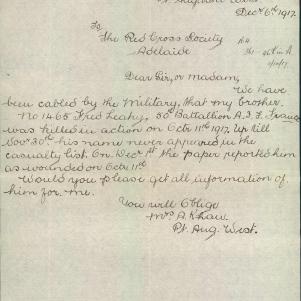 Pt Augusta West
Decr 6th 1917.
To
The Red Cross Society
Adelaide
Dear Sir, or Madam,
We have
been cabled by the Military, that my brother.
No 1465 Fred Leahy, 50th Battalion A.I.F. France
was killed in action on Octr 11th 1917. Up till
Novr 30th his name never appeared in the
casualty list. On Decr 1st the paper reported him
as wounded on Octr 11th
Would you please get all information of
him for me.
You will Oblige
Mrs A. Khaw.
Pt. Aug. West.